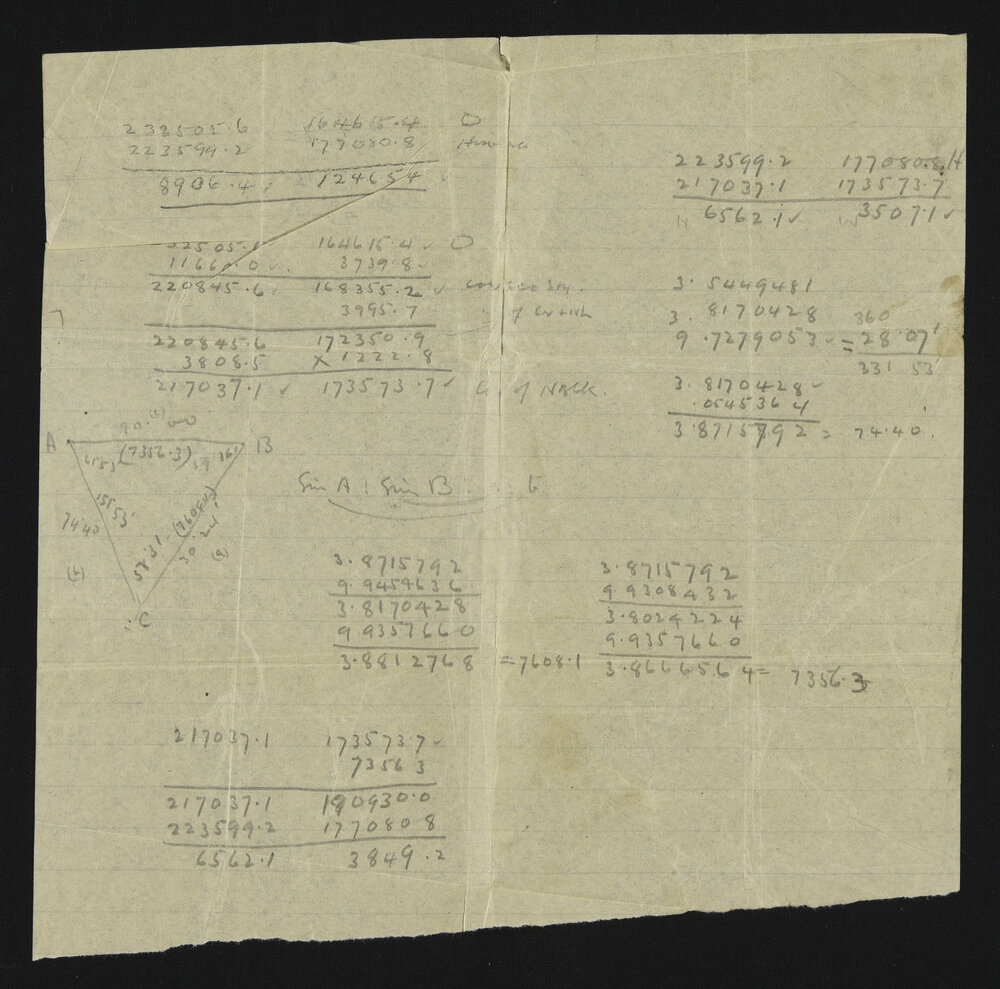 232505.6 164615.4 O
223599.2 177080.8
8906.4 124654
22505.1 164615.4 O
11660.0 3739.8
220845.6 168355.2
3995.7
220845.6 172350.9
3808.5 X 1222.8
217037.1 173573.7 of
223599.2 177080.8 H
217037.1 173573.7
N 6562.1 W 3507.1
3.5449481
3.8170428 360
9.7279053 = 28°07'
331 53'
3.8170428
.0545364
3.8715792 = 74.40.
90° 00
A (7356.3) B
61.53 59 36
151 53'
74.40 (7608.1)
58.31. 30° 24'
(b) (a)
C
Sin A : Sin B b
3.8715792
9.9454636
3.8170428
9.9357660
3.8812768 = 7608.1
3.8715792
9.9308432
3.8024224
9.9357660
3.8666564 = 7356.3
217037.1 173573.7
7356 3
217037.1 180930.0
223599.2 177080 8
6562.1 3849.2